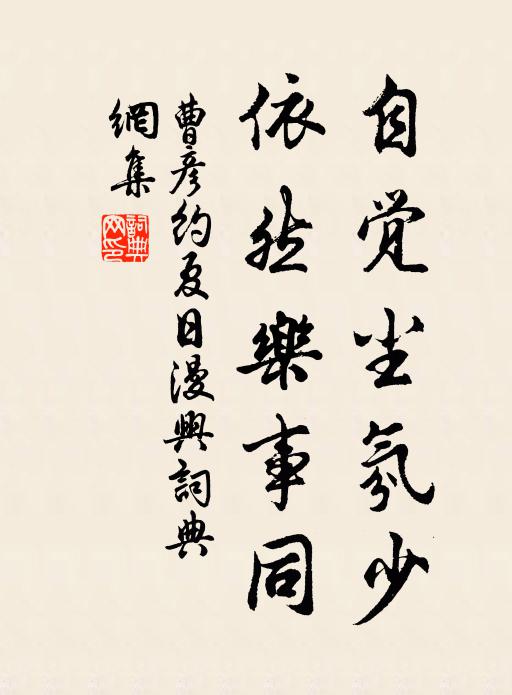 自觉尘氛少
依然樂事同
曹彦约夏日漫興詞典
網集
詞典
网印